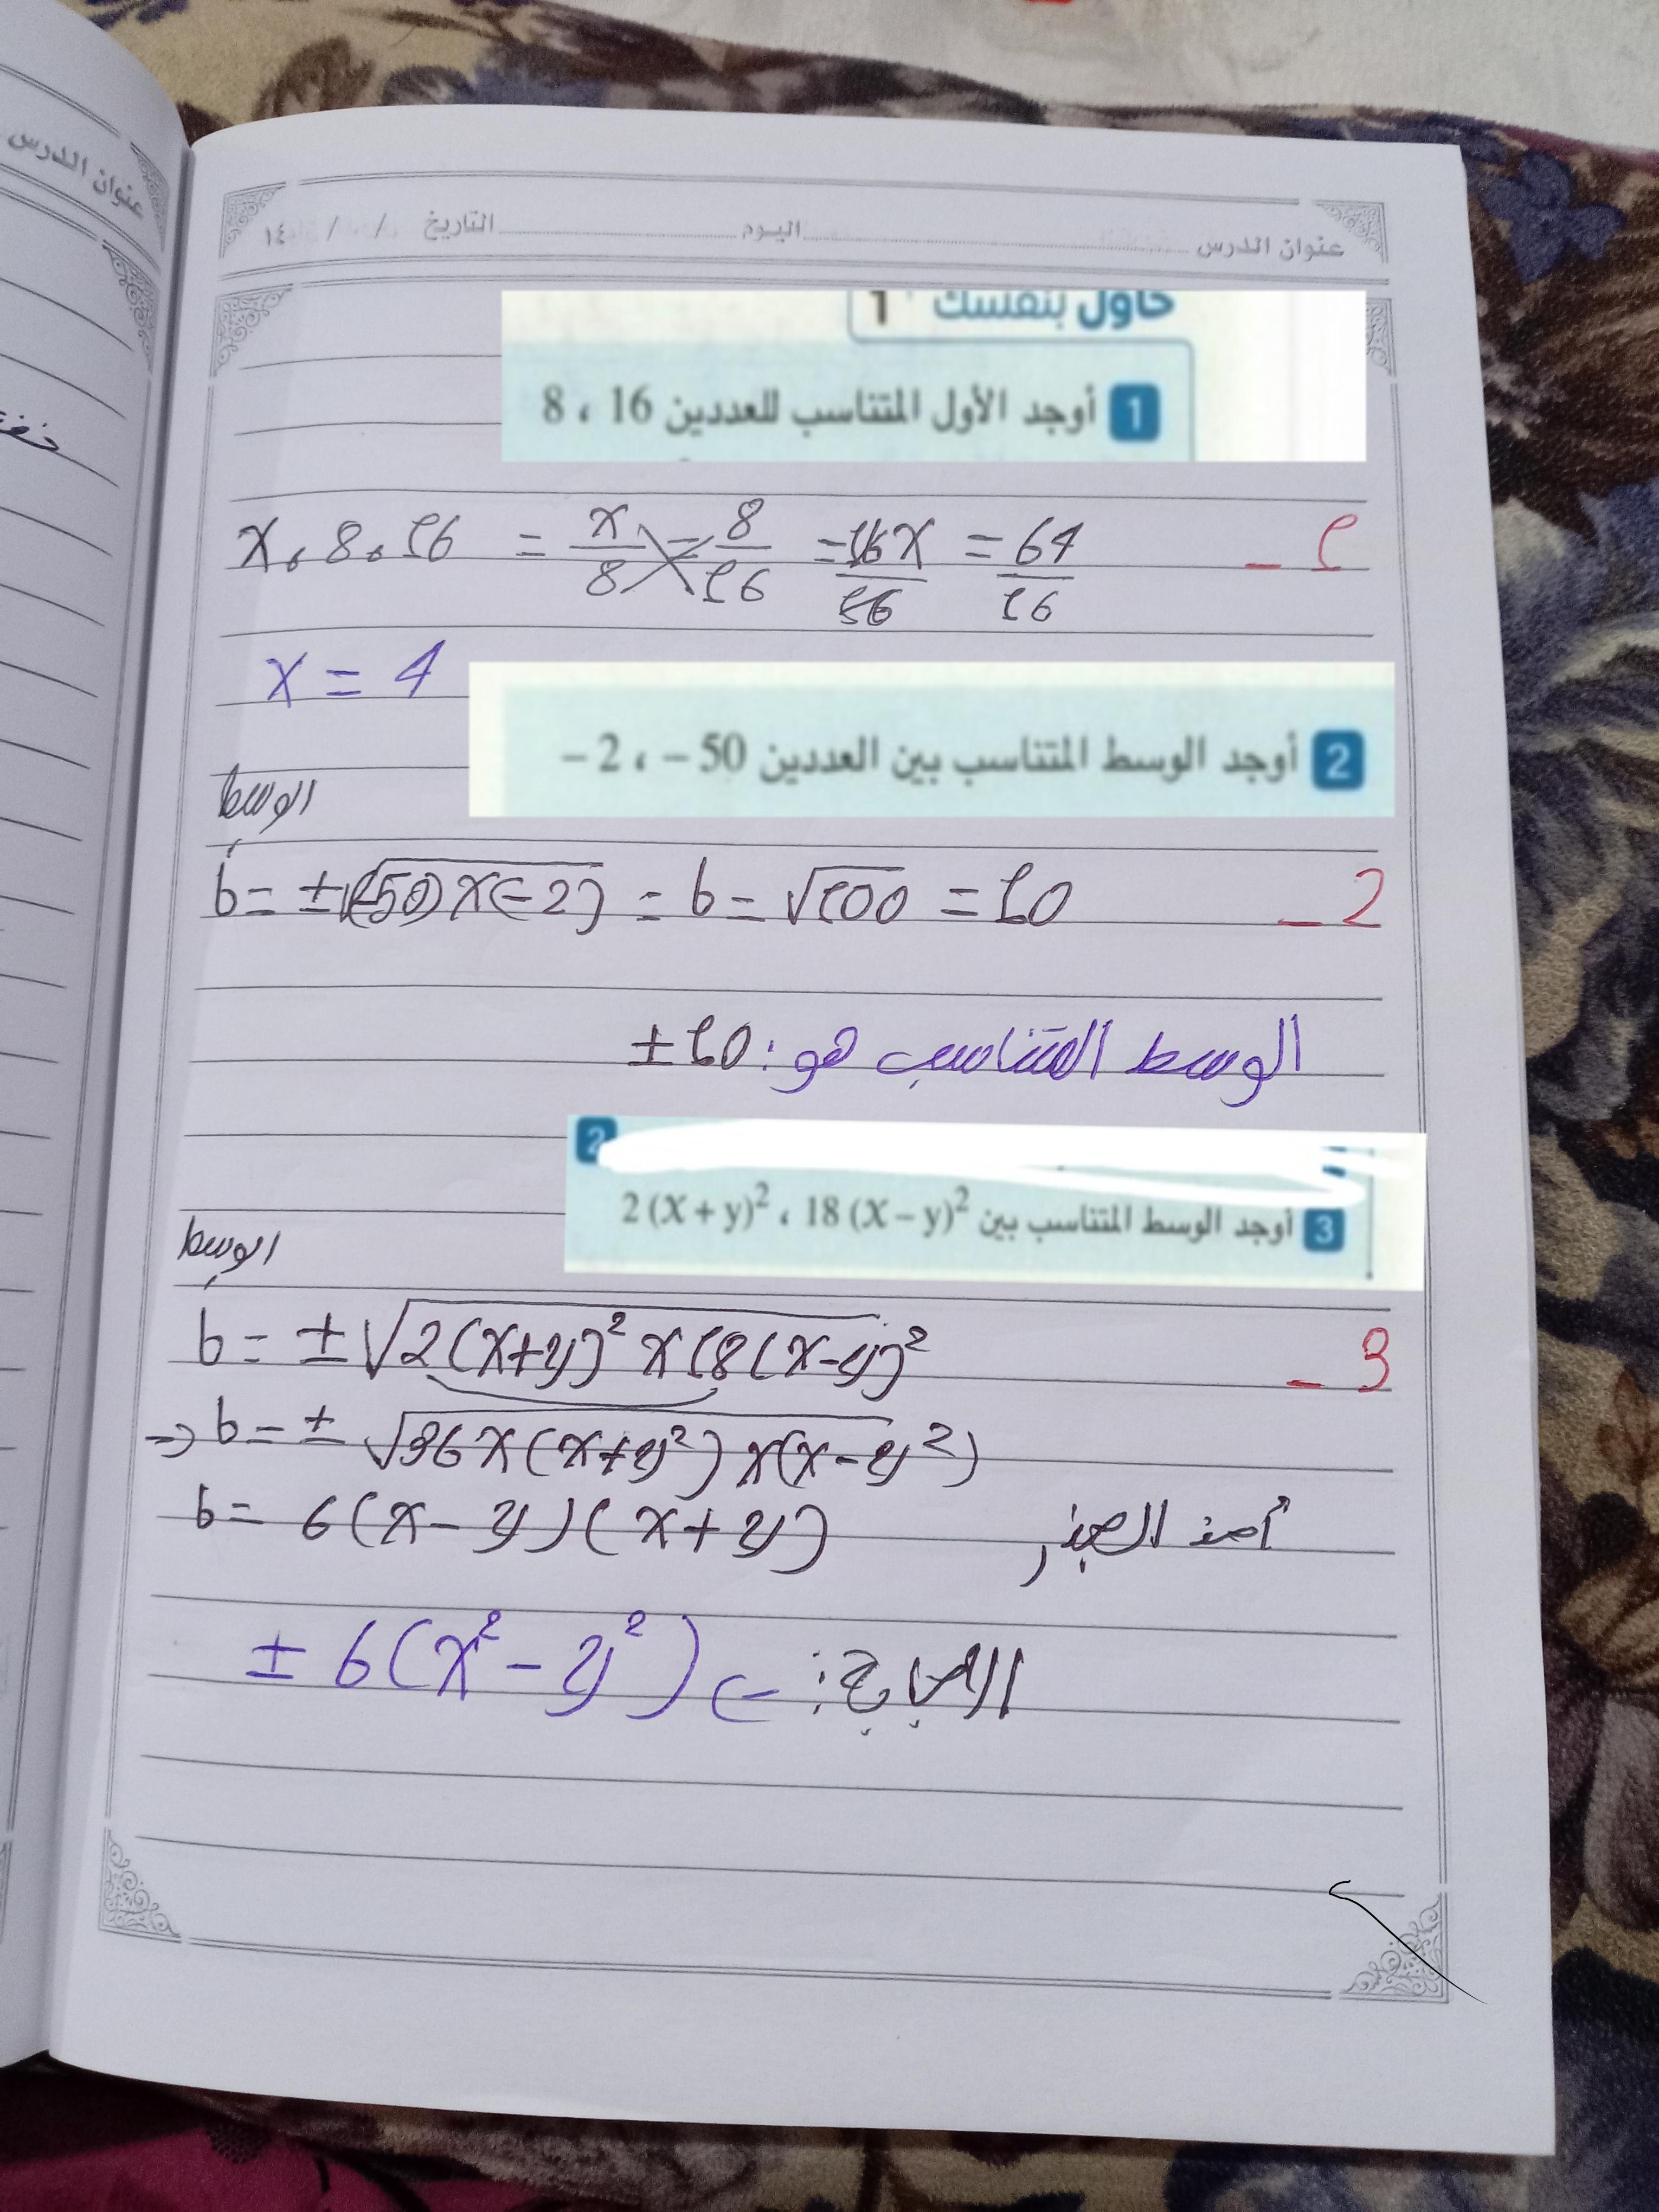 عنوان الدرس
عنوان الدرس اليوم التاريخ / / ١٤
حاول بنفسك 1
1 أوجد الأول المتناسب للعددين 16 ، 8
1 -
x, 8, 16 = x/8 = 8/16 = 16x/16 = 64/16
x = 4
2 أوجد الوسط المتناسب بين العددين 50 – ، 2 –
الوسط
2 -
b = ±√(-50)x(-2) = b = √100 = 10
الوسط المتناسب هو: 10±
2
3 أوجد الوسط المتناسب بين 2 (X + y)² ، 18 (X – y)²
الوسط
3 -
b = ±√2(x+y)² x 18(x-y)²
⇒ b = ± √36 x (x+y²) x (x-y²)
b = 6(x-y)(x+y) أخذ الجذر
± 6(x² - y²) ← : الاجابة